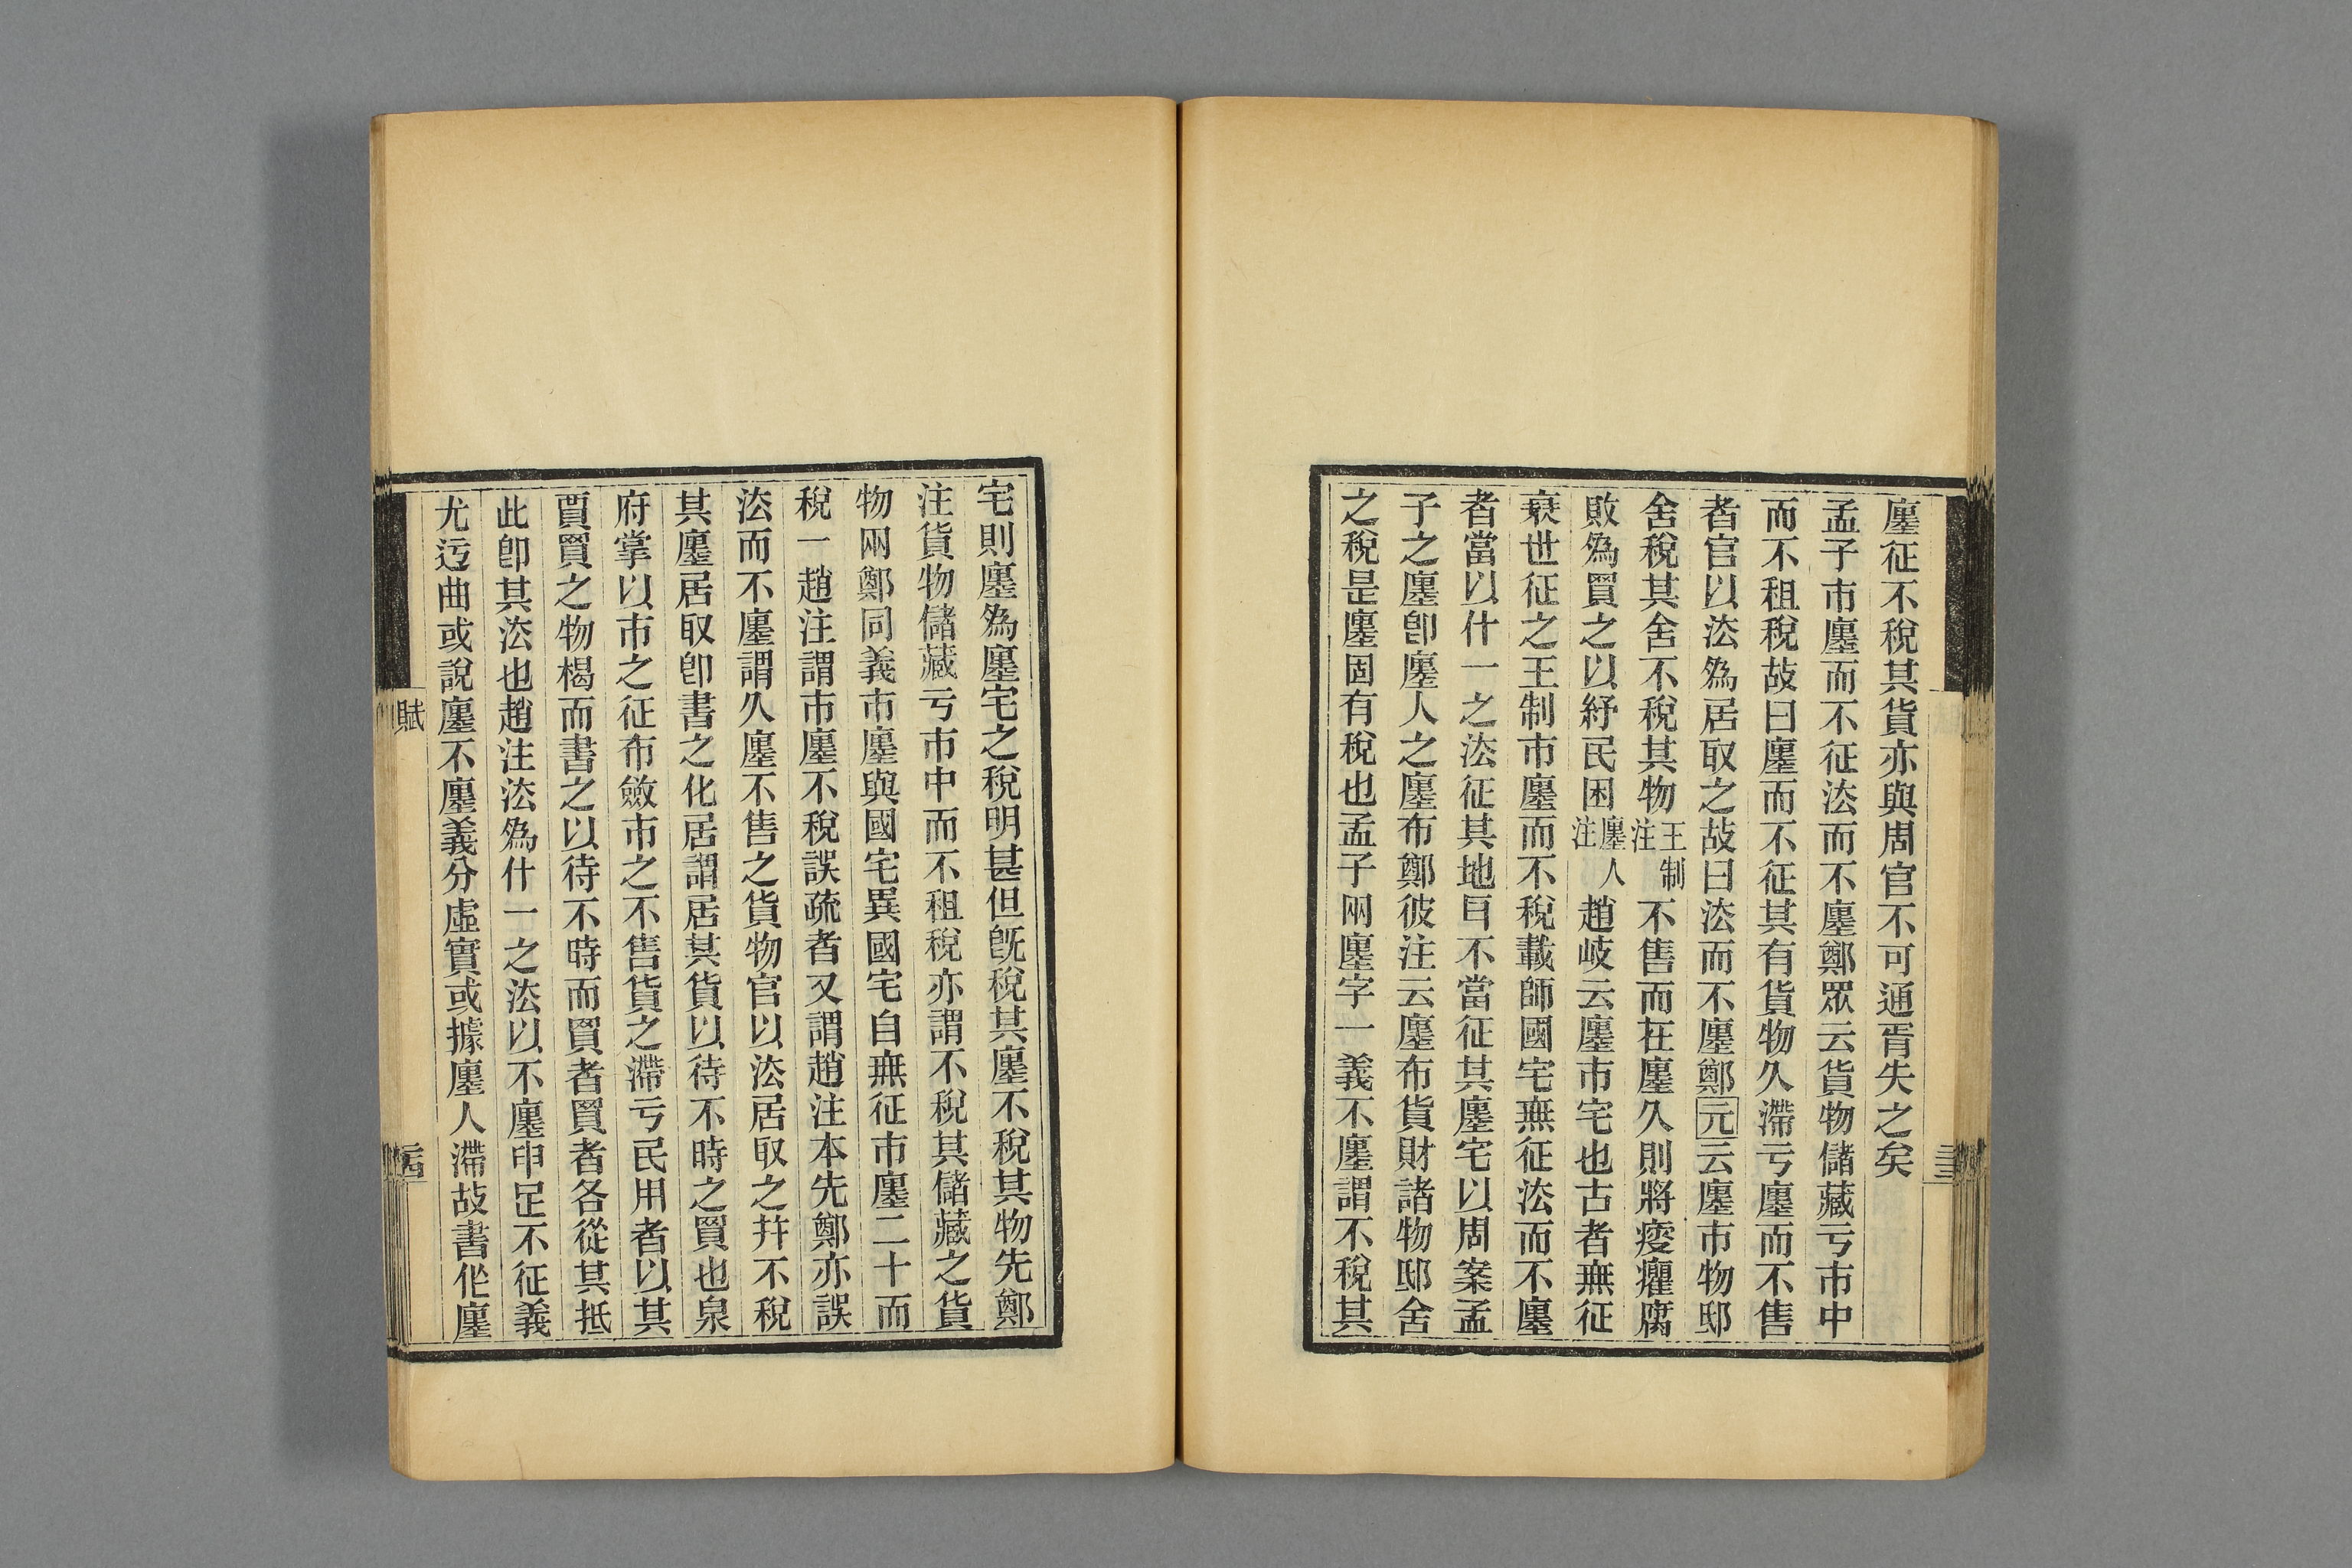 廛征不稅其貨亦與周官不可通胥失之矣
孟子市廛而不征㳒而不廛鄭眾云貨物儲藏亏市中
而不租稅故曰廛而不征其有貨物久滯亏廛而不售
者官以㳒爲居取之故曰㳒而不廛鄭元云廛市物邸
舍稅其舍不稅其物王制注不售而在廛久則將瘦臞腐
敗爲買之以紓民困廛人注趙岐云廛市宅也古者無征
衰世征之王制市廛而不稅載師國宅無征㳒而不廛
者當以什一之㳒征其地㠯不當征其廛宅以周案孟
子之廛卽廛人之廛布鄭彼注云廛布貨財諸物邸舍
之稅是廛固有稅也孟子兩廛字一義不廛謂不稅其
宅則廛爲廛宅之稅明甚但旣稅其廛不稅其物先鄭
注貨物儲藏亏市中而不租稅亦謂不稅其儲藏之貨
物兩鄭同義市廛與國宅異國宅自無征市廛二十而
稅一趙注謂市廛不稅誤疏者又謂趙注本先鄭亦誤
㳒而不廛謂久廛不售之貨物官以㳒居取之幷不稅
其廛居取卽書之化居謂居其貨以待不時之買也泉
府掌以市之征布斂市之不售貨之滯亏民用者以其
賈買之物楬而書之以待不時而買者買者各從其抵
此卽其㳒也趙注㳒爲什一之㳒以不廛申足不征義
尤迃曲或說廛不廛義分虛實或據廛人滯故書作廛
賦